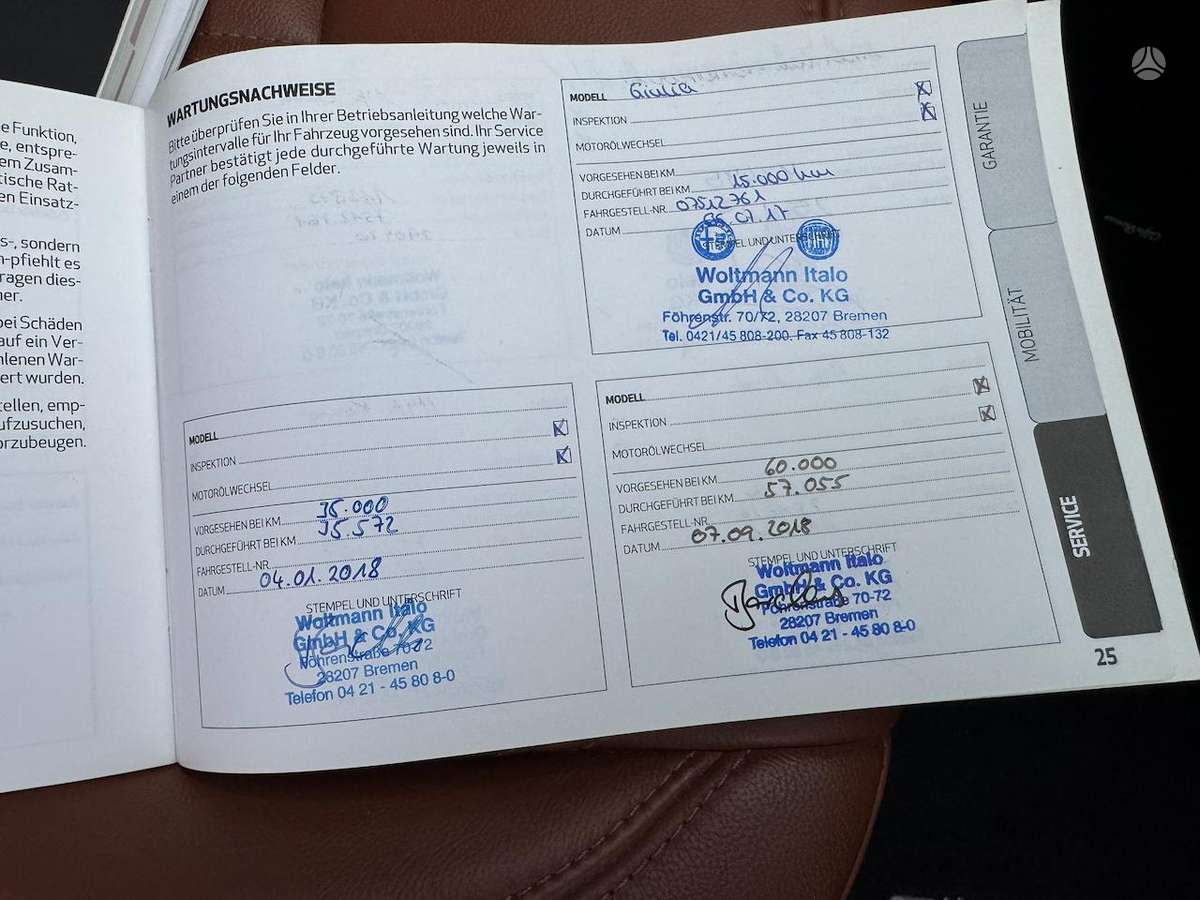 e Funktion,
e, entspre-
em Zusam-
tische Rat-
en Einsatz-
s-, sondern
n-pfiehlt es
ragen dies-
ner.
bei Schäden
auf ein Ver-
hlenen War-
ert wurden.
tellen, emp-
ufzusuchen,
orzubeugen.
WARTUNGSNACHWEISE
Bitte überprüfen Sie in Ihrer Betriebsanleitung welche War-
tungsintervalle für Ihr Fahrzeug vorgesehen sind. Ihr Service
Partner bestätigt jede durchgeführte Wartung jeweils in
einem der folgenden Felder.
MODELL Giulia
INSPEKTION
MOTORÖLWECHSEL
VORGESEHEN BEI KM
DURCHGEFÜHRT BEI KM 15.000 km
FAHRGESTELL-NR. 07512761
DATUM 06.07.17
STEMPEL UND UNTERSCHRIFT
Woltmann Italo
GmbH & Co. KG
Föhrenstr. 70/72, 28207 Bremen
Tel. 0421/45 808-200, Fax 45 808-132
MODELL
INSPEKTION
MOTORÖLWECHSEL
VORGESEHEN BEI KM 35.000
DURCHGEFÜHRT BEI KM 35.572
FAHRGESTELL-NR.
DATUM 04.01.2018
STEMPEL UND UNTERSCHRIFT
Woltmann Italo
GmbH & Co. KG
Föhrenstraße 70-72
28207 Bremen
Telefon 04 21 - 45 80 8-0
MODELL
INSPEKTION
MOTORÖLWECHSEL
VORGESEHEN BEI KM 60.000
DURCHGEFÜHRT BEI KM 57.055
FAHRGESTELL-NR.
DATUM 07.09.2018
STEMPEL UND UNTERSCHRIFT
Woltmann Italo
GmbH & Co. KG
Föhrenstraße 70-72
28207 Bremen
Telefon 04 21 - 45 80 8-0
GARANTIE
MOBILITÄT
SERVICE
25